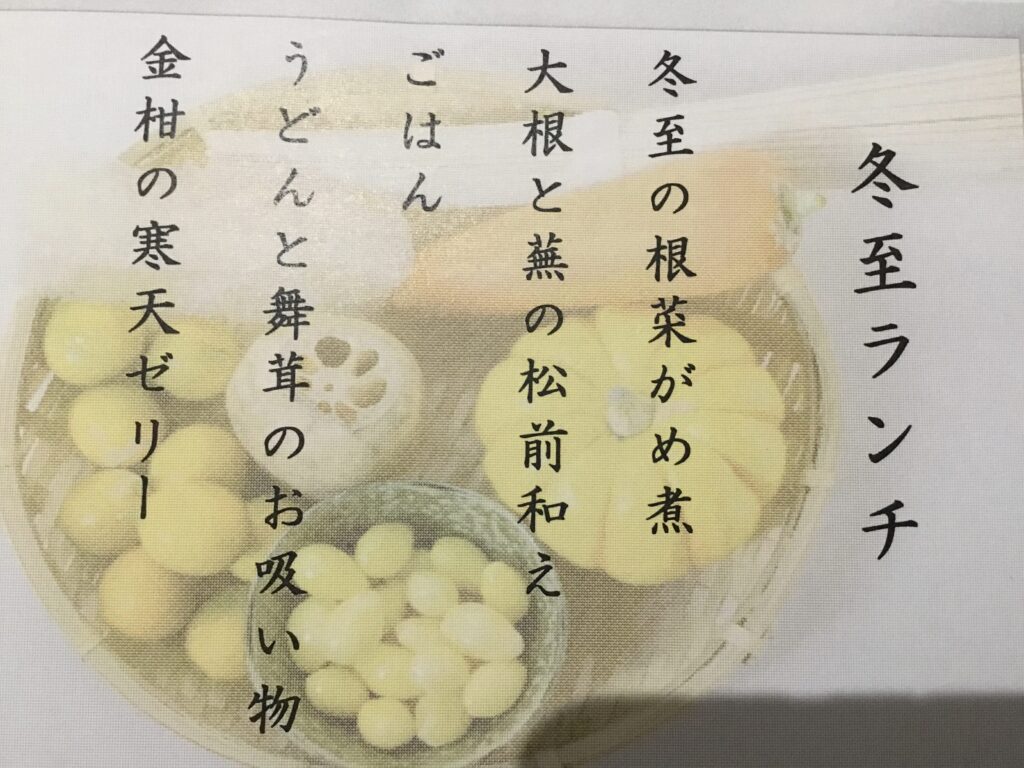 冬至ランチ
冬至の根菜がめ煮
大根と蕪の松前和え
ごはん
うどんと舞茸のお吸い物
金柑の寒天ゼリー